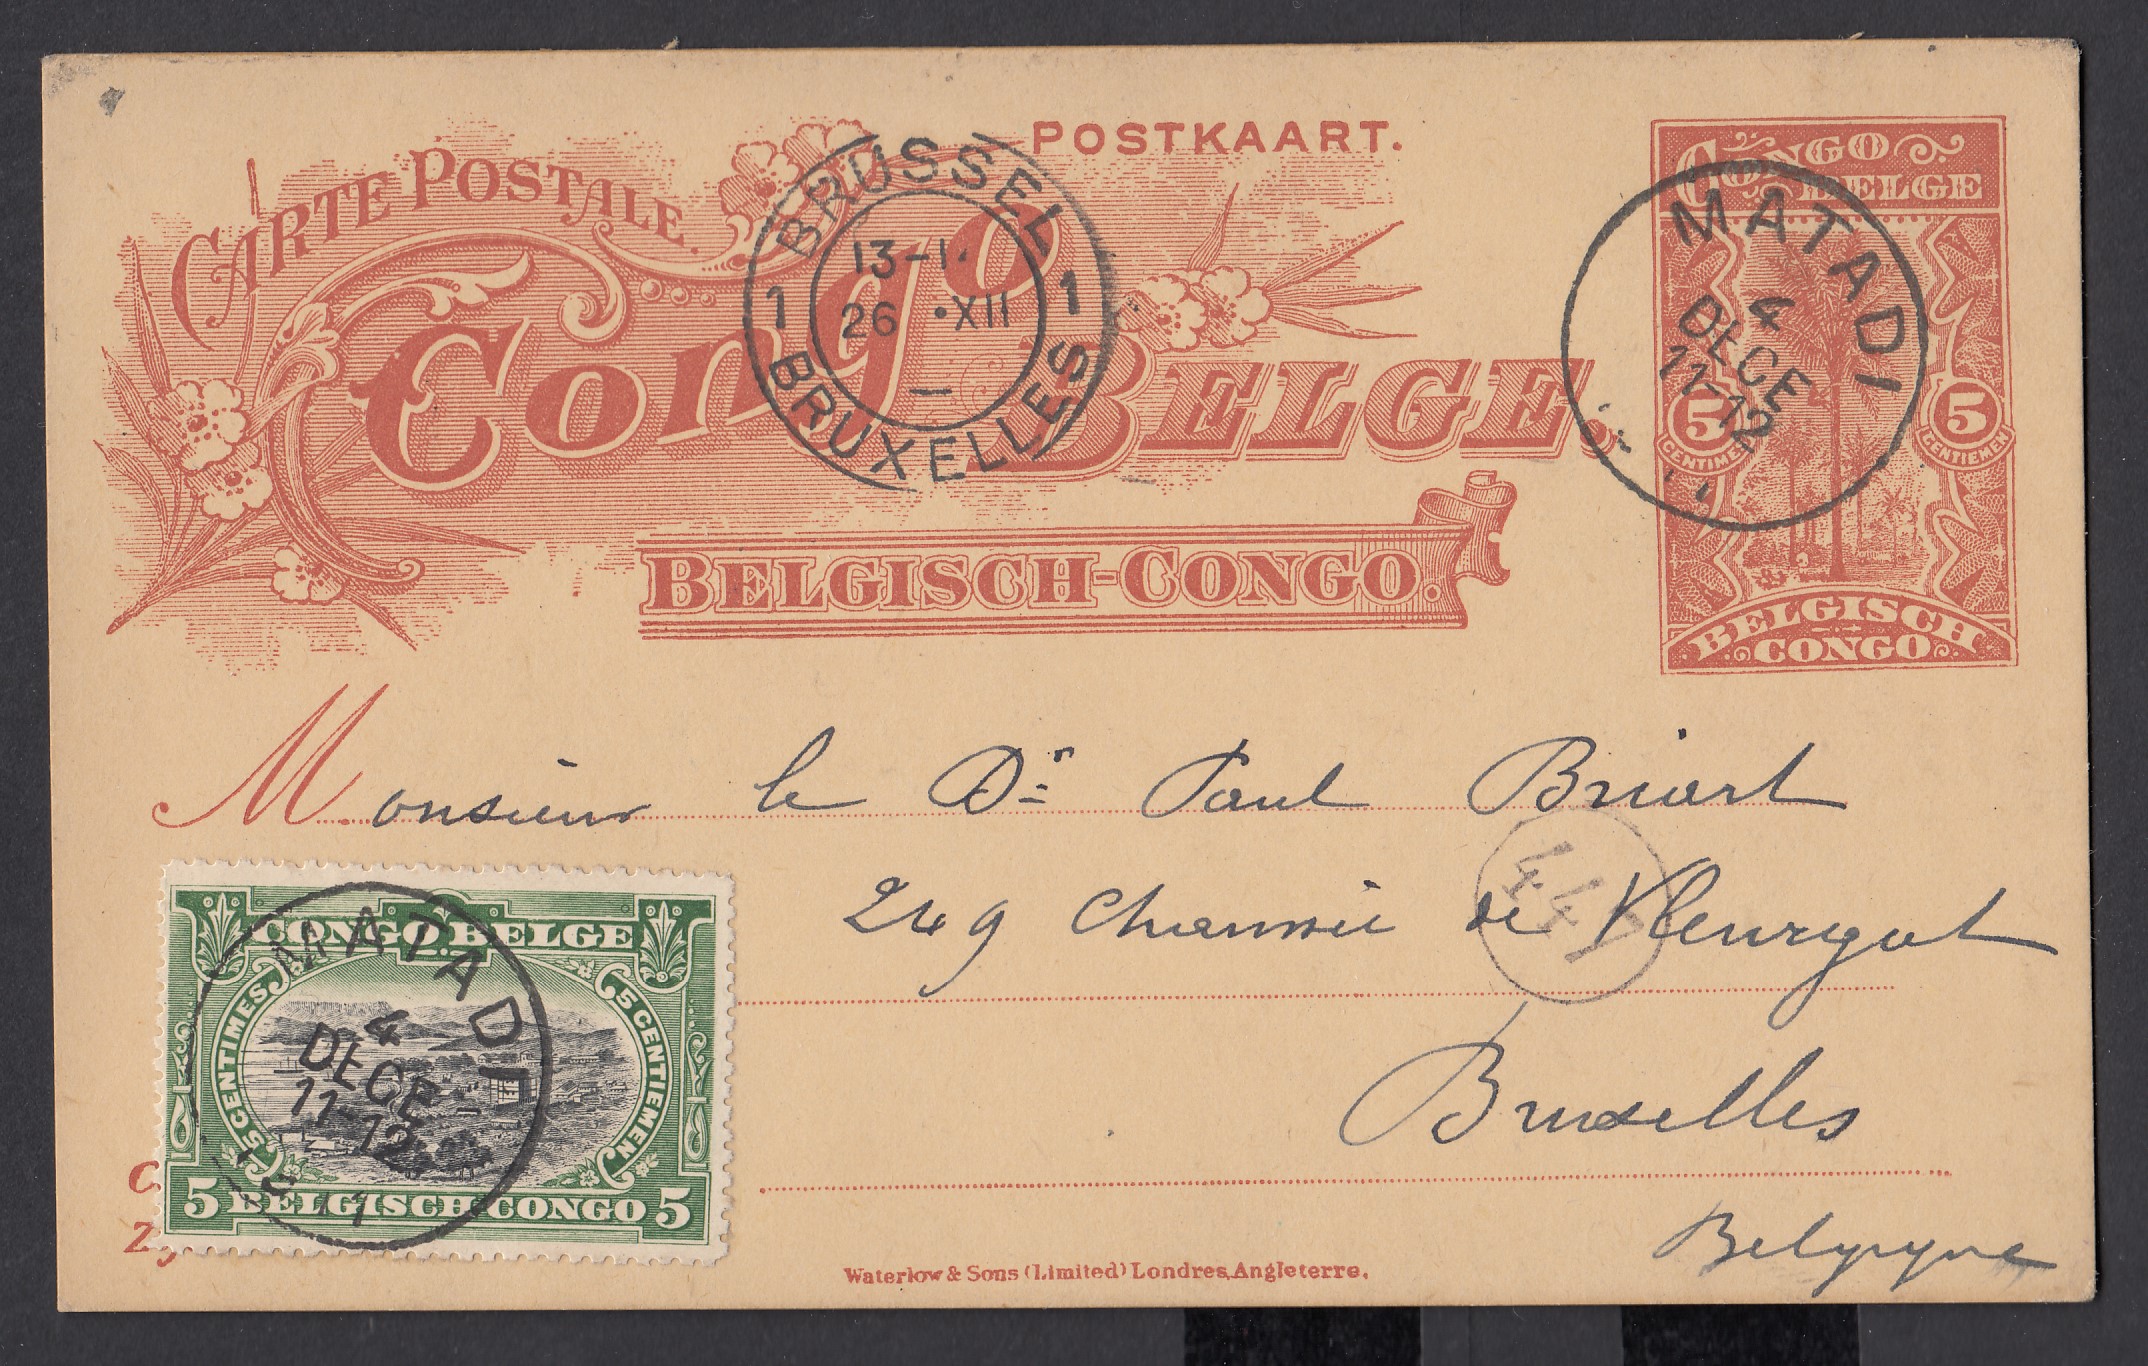 CARTE POSTALE.
POSTKAART.
Congo BELGE.
BELGISCH-CONGO.
BRUSSEL
1 1
26 XII
BRUXELLES
CONGO BELGE
5 CENTIMES
5 CENTIEMEN
BELGISCH CONGO
MATADI
4
DECE
11-12
Monsieur le Dr Paul Briart
249 Chaussée de Vleurgat
Bruxelles
Belgique
44
CONGO BELGE
5 CENTIMES
5 CENTIEMEN
5 BELGISCH CONGO 5
MATADI
4
DECE
11-12
Waterlow & Sons (Limited) Londres, Angleterre.